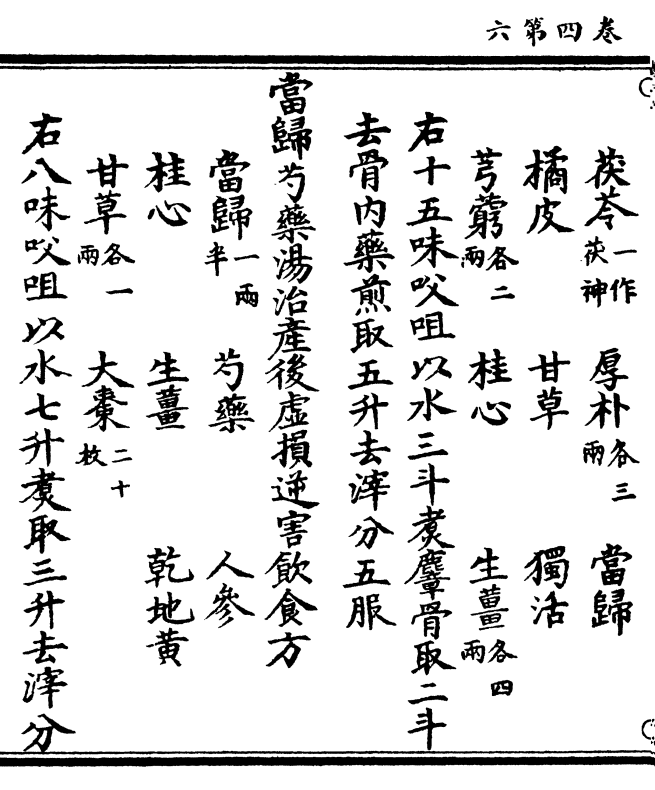 卷四第六
茯苓一作茯神 厚朴各三兩 當歸
橘皮 甘草 獨活
芎藭各二兩 桂心 生薑各四兩
右十五味㕮咀以水三斗煑麞骨取二斗
去骨内藥煎取五升去滓分五服
當歸芍藥湯治產後虛損逆害飲食方
當歸一兩半 芍藥 人參
桂心 生薑 乾地黄
甘草各一兩 大棗二十枚
右八味㕮咀以水七升煑取三升去滓分